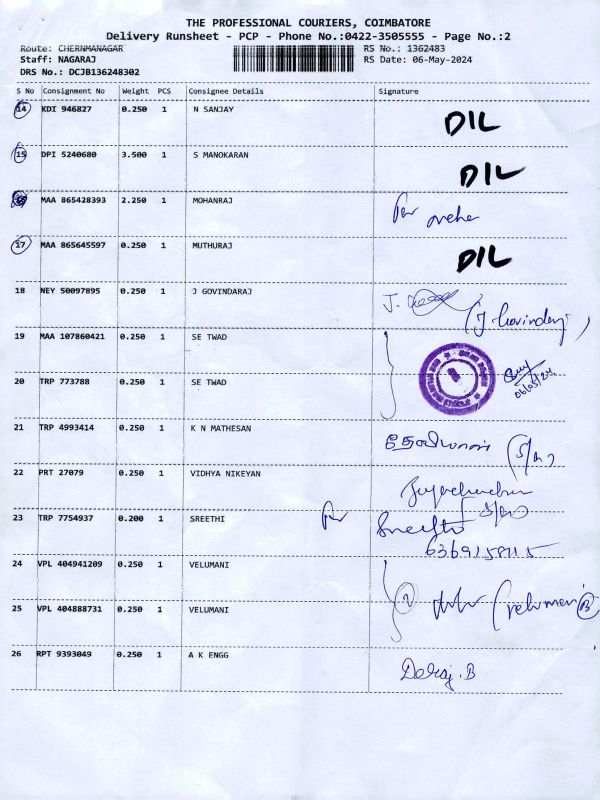 THE PROFESSIONAL COURIERS, COIMBATORE
Delivery Runsheet - PCP - Phone No.:0422-3505555 - Page No.:2
Route: CHERNMANAGAR
RS No.: 1362483
Staff: NAGARAJ
RS Date: 06-May-2024
DRS No.: DCJB136248302
S No Consignment No Weight PCS Consignee Details Signature
14 KDI 946827 0.250 1 N SANJAY DIL
15 DPI 5240680 3.500 1 S MANOKARAN DIL
MAA 865428393 2.250 1 MOHANRAJ
17 MAA 865645597 0.250 1 MUTHURAJ DIL
18 NEY 50097895 0.250 1 J GOVINDARAJ J.
(J. Govindaraj)
19 MAA 107860421 0.250 1 SE TWAD
20 TRP 773788 0.250 1 SE TWAD
06/05/24
21 TRP 4993414 0.250 1 K N MATHESAN
22 PRT 27079 0.250 1 VIDHYA NIKEYAN
23 TRP 7754937 0.200 1 SREETHI Sreethi
6369158115
24 VPL 404941209 0.250 1 VELUMANI
25 VPL 404888731 0.250 1 VELUMANI
26 RPT 9393049 0.250 1 A K ENGG